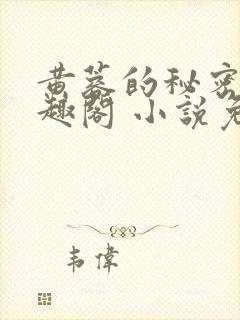 黄蓉的秘密
趣阁 小説免
韦偉